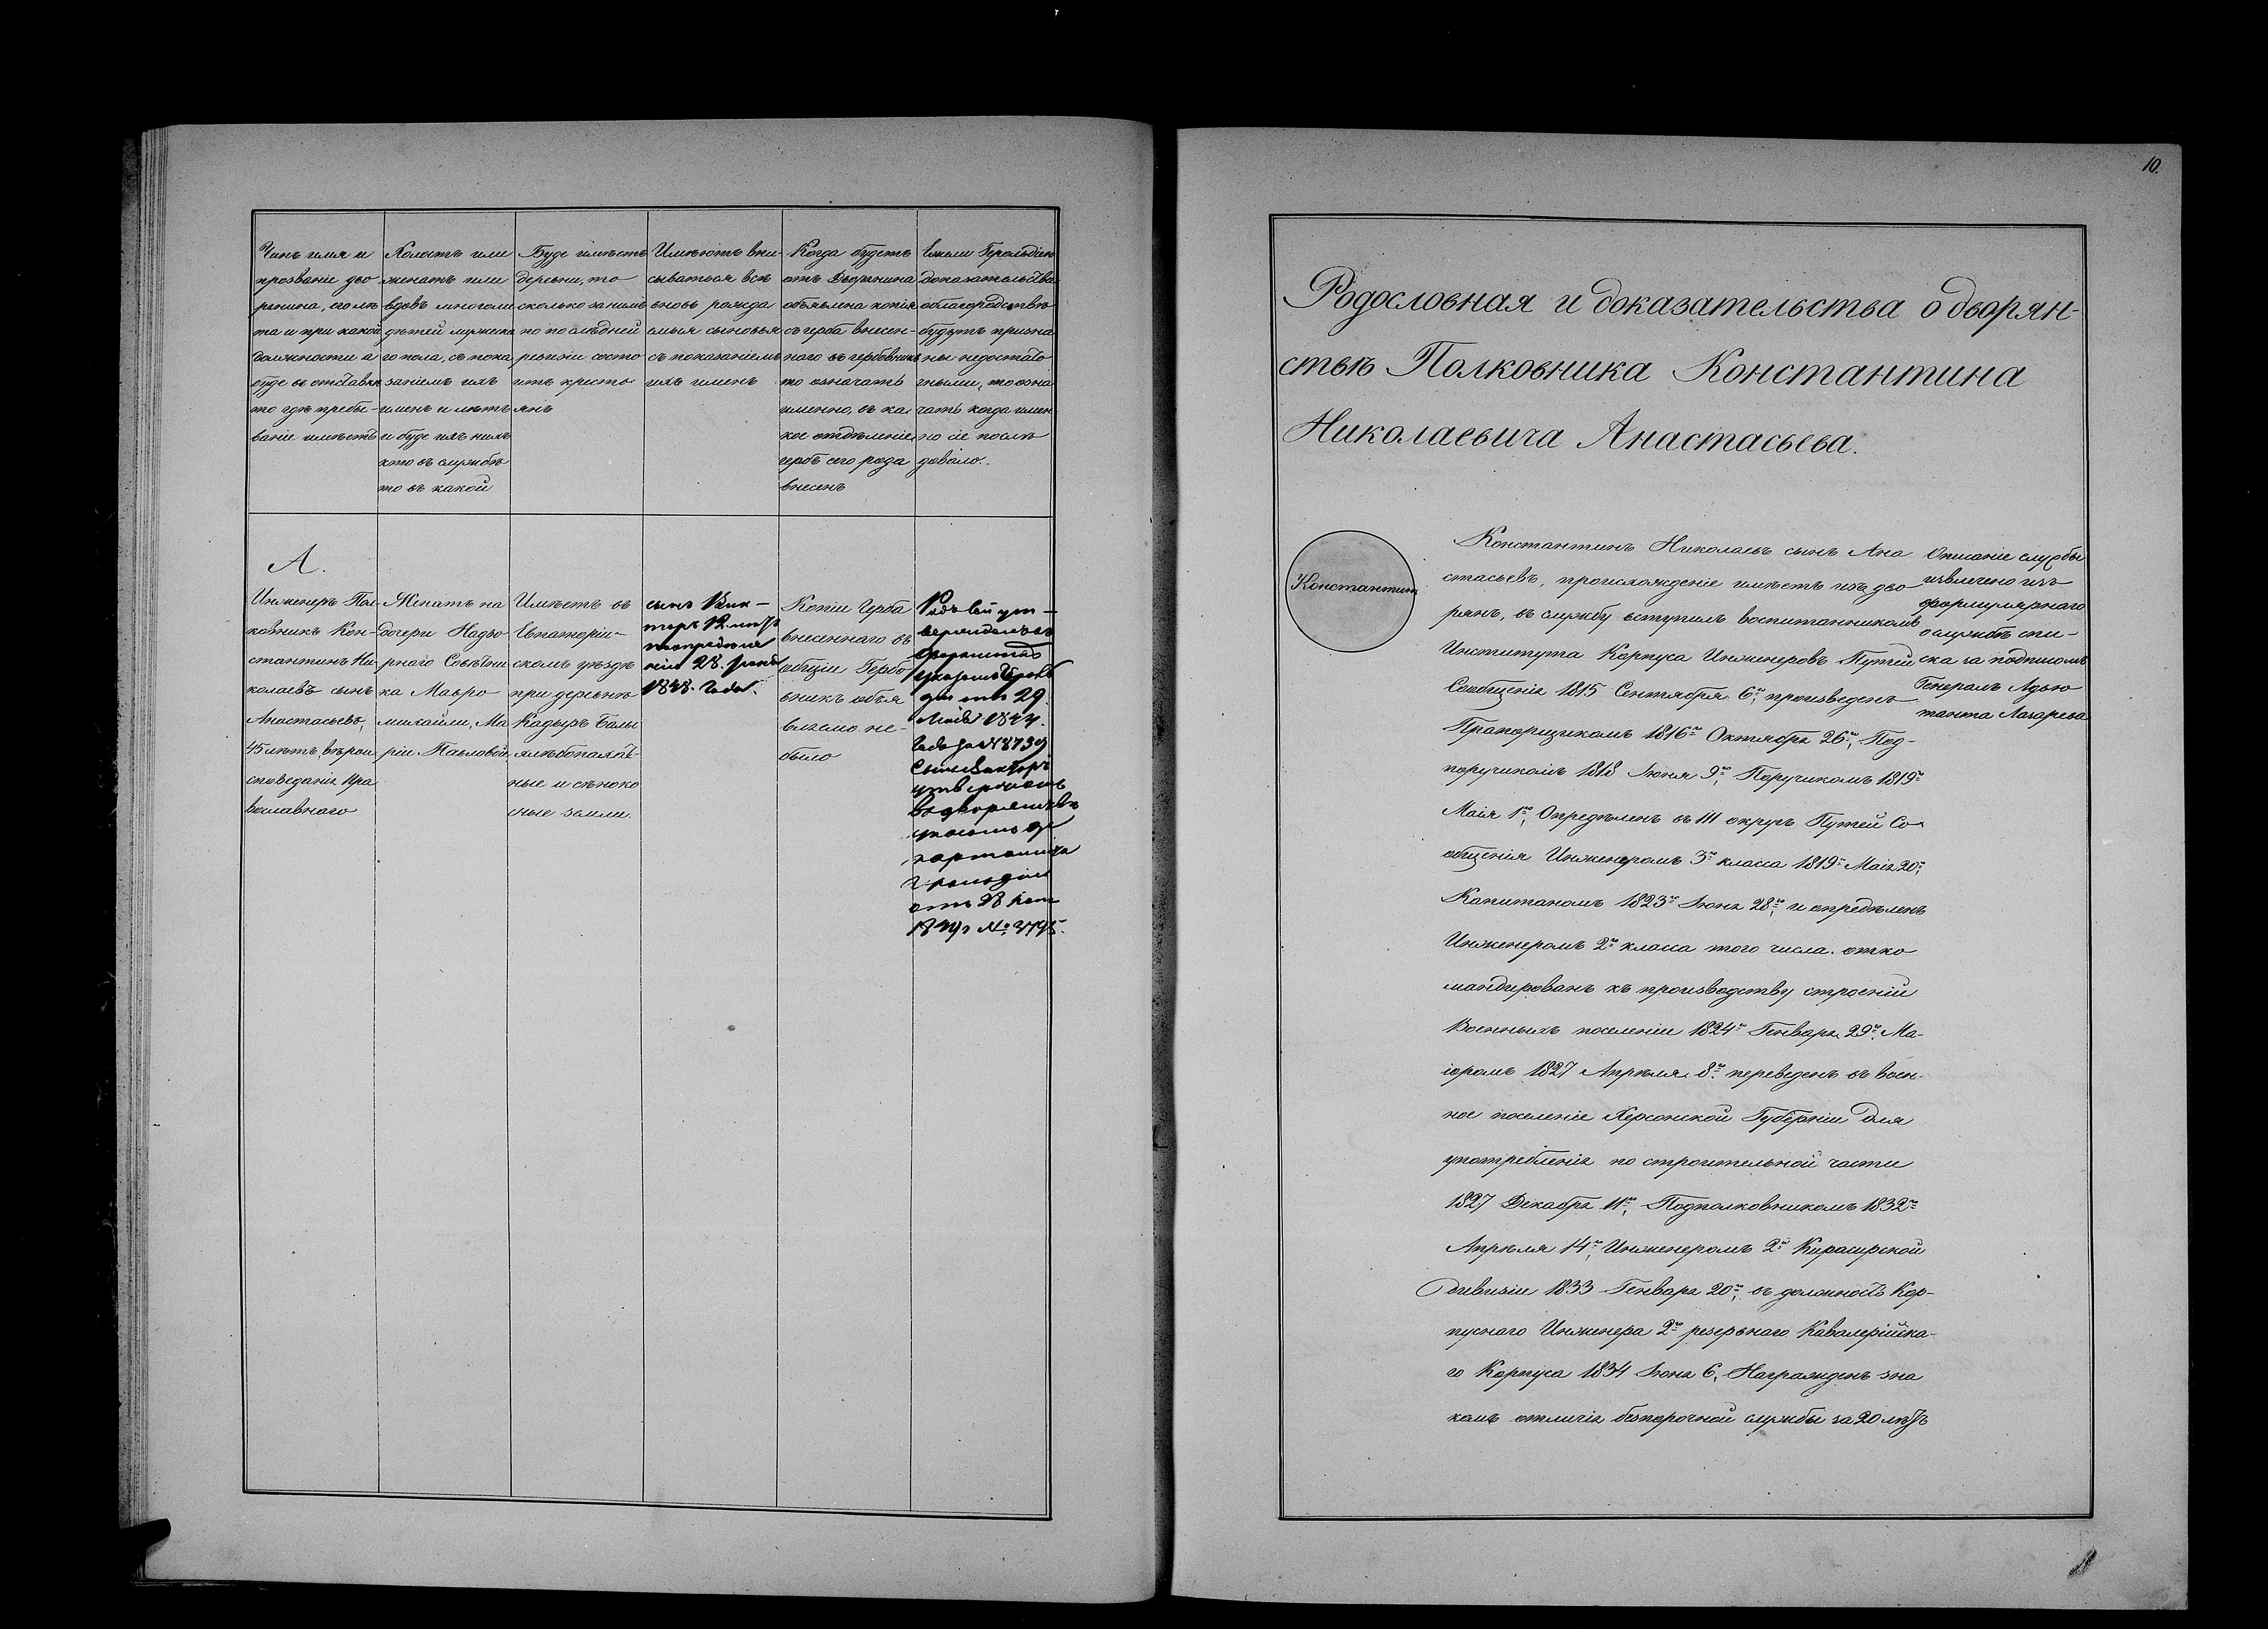 Чинъ имя и
прозваніе дво
рянина, его лѣ
та и при какой
должности а
буде въ отставкѣ
то гдѣ пребы-
ваніе имѣетъ
Холостъ или
женатъ или
вдовъ многоли
дѣтей мужеска
го пола, съ пока
заніемъ ихъ
именъ и лѣтъ
и буде изъ нихъ
кто въ службѣ
то въ какой
Буде имѣетъ
деревни, то
сколько за нимъ
по послѣдней
ревизіи состо
итъ кресть
янъ
Имѣютъ впи-
сываться всѣ
вновь рожда
емыя сыновья
съ показаніемъ
ихъ именъ
Когда будетъ
отъ Дворянина
объявлена копія
съ герба внесен-
наго въ гербовникъ
то означать
именно, въ ка
кое отдѣленіе
гербъ сего рода
внесенъ
Ежели Герольдіею
доказательства
о благородствѣ
будутъ призна
ны недостато
чными, то озна
чать когда имен
но сіе послѣ
довало.
А.
Инженеръ Пол-
ковникъ Кон-
стантинъ Ни-
колаевъ сынъ
Анастасьевъ,
45 лѣтъ, вѣрои
споведанія пра
вославнаго
Женатъ на
дочери Надво
рнаго Совѣтни
ка Мавро
михайли, Ма
ріи Павловой
Имѣетъ въ
Евпаторій-
скомъ уѣздѣ
при деревнѣ
Кадыръ Балы
хлѣбопахот-
ные и сѣноко
сные земли.
сынъ Вик-
торъ 12 лѣтъ
по опредѣле
нію 28. Іюня
1848. Года.
Копіи Герба
внесеннаго въ
общіи Гербо
вникъ объя
влемо не-
было
Родъ сей ут-
вержденъ въ
дворянствѣ
указомъ Героль
діи отъ 29.
Мая 1844.
Года за № 8739
Сынъ Викторъ
утвержденъ
въ дворянствѣ
указомъ де
партамента
Герольдіи
отъ 28
№ 3795.
10.
Родословная и доказательства о дворян-
ствѣ Полковника Константина
Николаевича Анастасьева.
Константинъ
Константинъ Николаевъ сынъ Ана
стасьевъ, происхожденіе имѣетъ изъ дво
рянъ, въ службу вступилъ воспитанникомъ
Института Корпуса Инженеровъ Путей
Сообщенія 1815 Сентября 6го, произведенъ
Прапорщикомъ 1816го Октября 26го, Под-
поручикомъ 1818 Іюня 9го, Поручикомъ 1819го
Маія 1го, Опредѣленъ въ III округъ Путей Со
общенія Инженеромъ 3го класса 1819го Маія 20го,
Капитаномъ 1823го Іюня 28го, и опредѣленъ
Инженеромъ 2го класса того числа. отко
мандированъ къ производству строеній
Военныхъ поселеніи 1824го Генваря 29го, Ма-
іоромъ 1827 Апрѣля 8го переведенъ въ воен-
ное поселеніе Херсонской Губерніи для
употребленія по строительной части
1827 Декабря 11го, Подполковникомъ 1832го
Апрѣля 14го, Инженеромъ 2й Кирасирской
дивизіи 1833 Генваря 20го, въ должность Кор-
пуснаго Инженера 2го резервнаго Кавалерійска-
го Корпуса 1834 Іюня 6, Награжденъ зна
комъ отличія безпорочной службы за 20 лѣтъ
Описаніе службы
извлечено изъ
формулярнаго
о службѣ спи-
ска за подписомъ
Генералъ Адъю
танта Лазарева